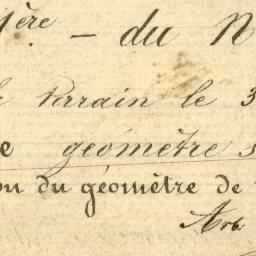 1ère — du N
le terrain le 3
e géomètre s
on du géomètre de
Arb